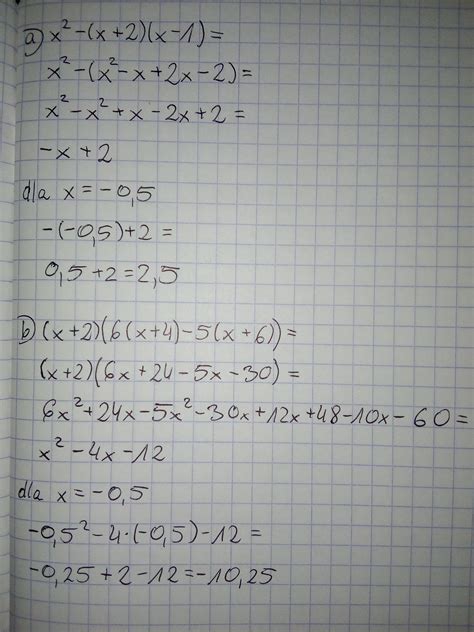 a) x² - (x+2)(x-1) =
x² - (x² - x + 2x - 2) =
x² - x² + x - 2x + 2 =
-x + 2
dla x = -0,5
-(-0,5) + 2 =
0,5 + 2 = 2,5
b) (x+2)(6(x+4) - 5(x+6)) =
(x+2)(6x + 24 - 5x - 30) =
6x² + 24x - 5x² - 30x + 12x + 48 - 10x - 60 =
x² - 4x - 12
dla x = -0,5
-0,5² - 4·(-0,5) - 12 =
-0,25 + 2 - 12 = -10,25